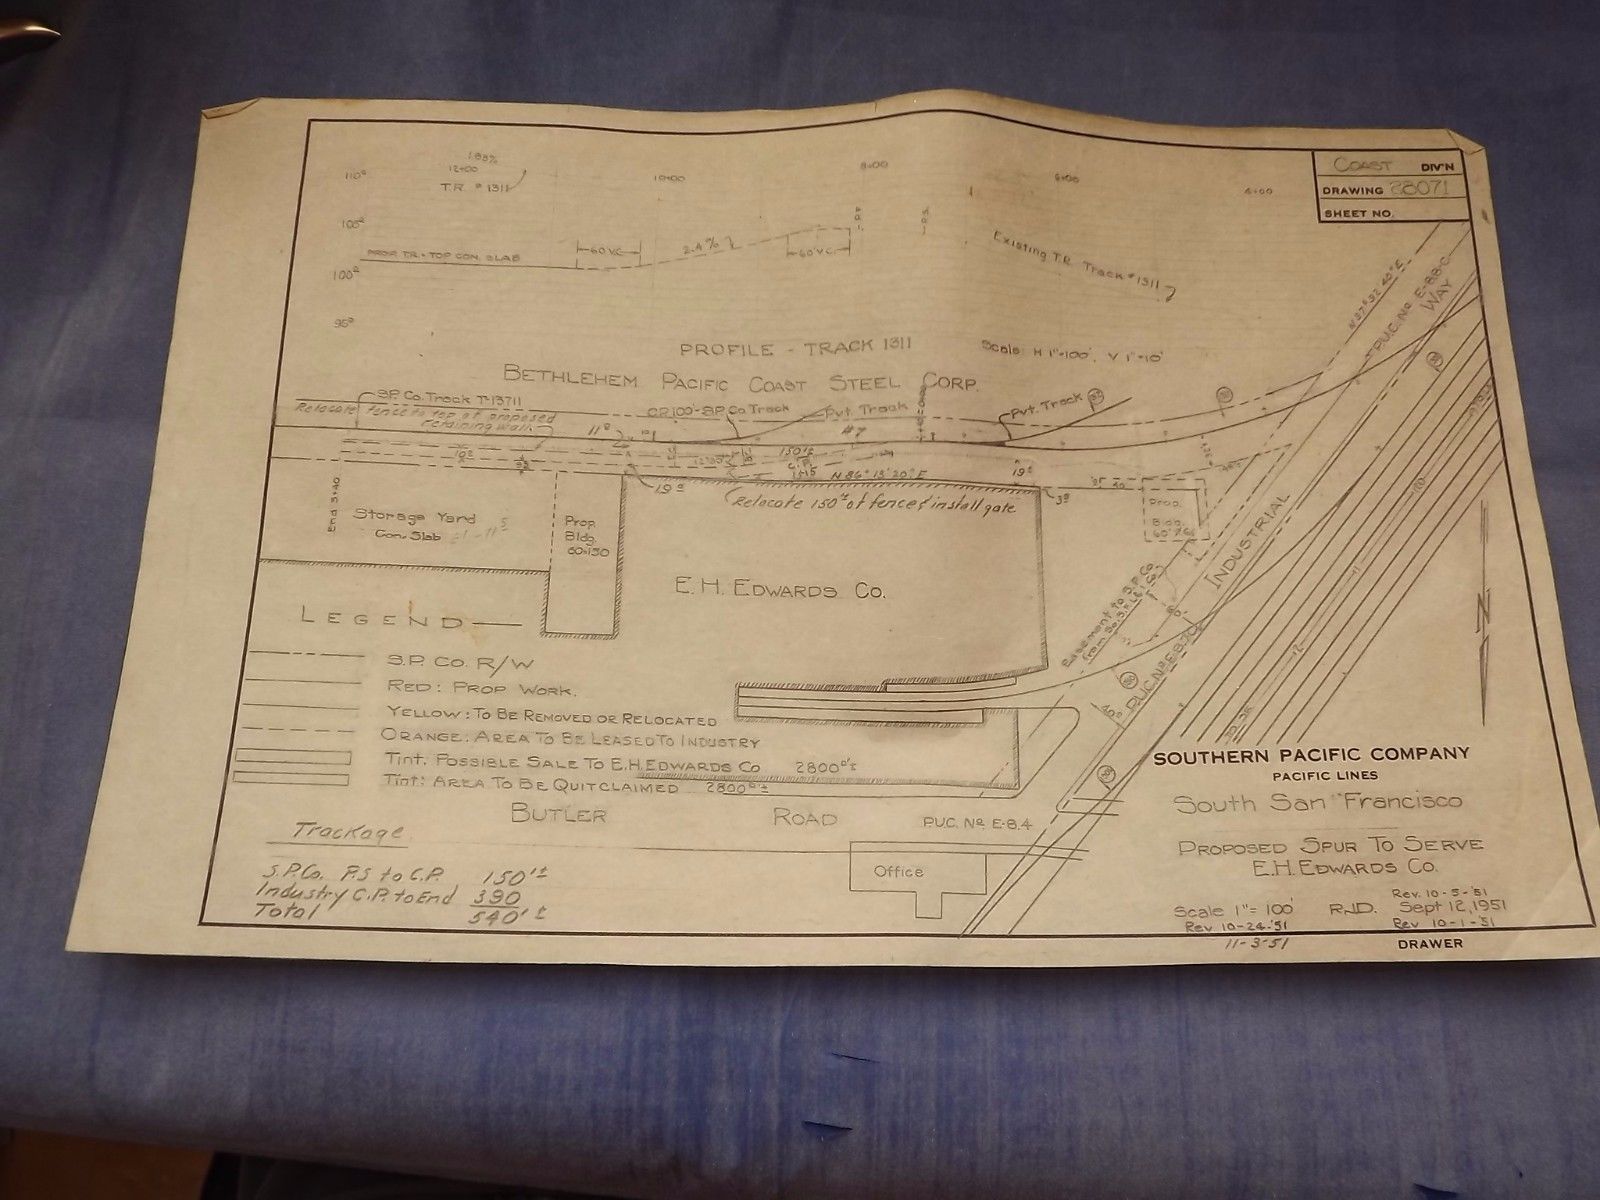 COAST DIV'N
DRAWING 28071
SHEET NO.
1.88%
12+00
10+00
8+00
6+00
4+00
T.R. #1311
110⁰
105⁰
100⁰
95⁰
PROP. T.R. - TOP CON. SLAB
60'V.C.
2.4%
60'V.C.
Existing T.R. Track #1311
PROFILE - TRACK 1311
Scale: H 1"=100', V 1"=10'
BETHLEHEM PACIFIC COAST STEEL CORP.
S.P. Co. Track T-13711
Relocate fence to top of proposed
retaining wall.
C.P. 100' - S.P. Co Track
Pvt. Track
Pvt. Track
#7
150'±
C.P.
1+15
N 86° 13' 20" E
N 37° 32' 40" E
P.U.C. No E-8.8-C
WAY
INDUSTRIAL
Relocate 150'± of fence & install gate
End 5+40
Storage Yard
Con. Slab
Prop.
Bldg.
60x150
Prop.
Bldg.
E. H. EDWARDS CO.
Easement to S.P. Co
60'
40'
LEGEND
S.P. CO. R/W
RED: PROP WORK.
YELLOW: TO BE REMOVED OR RELOCATED
ORANGE: AREA TO BE LEASED TO INDUSTRY
TINT: POSSIBLE SALE TO E.H. EDWARDS CO 2800□'±
TINT: AREA TO BE QUITCLAIMED 2800□'±
BUTLER ROAD
P.U.C. No E-8.4
Office
Trackage
S.P.Co. P.S to C.P. 150'±
Industry C.P. to End 390
Total 540'±
SOUTHERN PACIFIC COMPANY
PACIFIC LINES
South San Francisco
PROPOSED SPUR TO SERVE
E.H. EDWARDS CO.
Rev. 10-5-'51
Scale 1"=100' R.J.D. Sept 12, 1951
Rev 10-24-'51 Rev 10-1-'51
11-3-'51 DRAWER